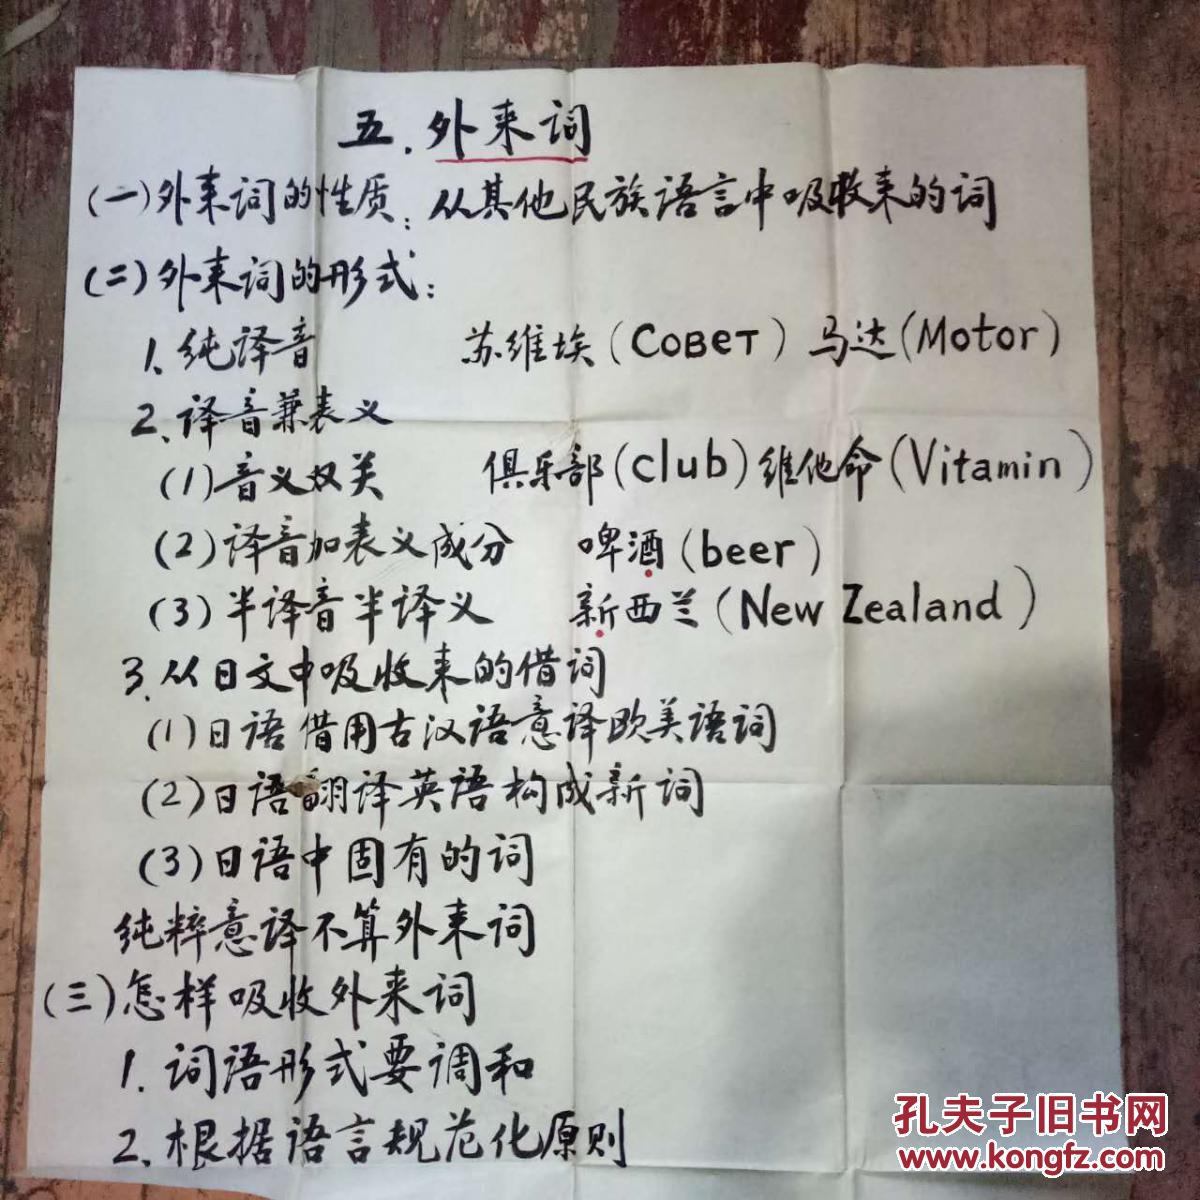 五.外来词
(一)外来词的性质:从其他民族语言中吸收来的词
(二)外来词的形式:
1.纯译音 苏维埃(Совет)马达(Motor)
2.译音兼表义
(1)音义双关 俱乐部(club)维他命(Vitamin)
(2)译音加表义成分 啤酒(beer)
(3)半译音半译义 新西兰(New Zealand)
3.从日文中吸收来的借词
(1)日语借用古汉语意译欧美语词
(2)日语翻译英语构成新词
(3)日语中固有的词
纯粹意译不算外来词
(三)怎样吸收外来词
1.词语形式要调和
2.根据语言规范化原则
孔夫子旧书网
www.kongfz.com